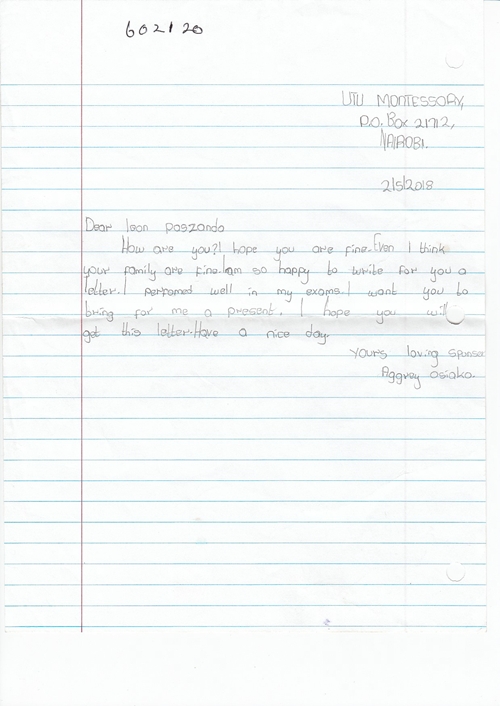 602120
UTU MONTESSORY,
P.O. Box 21712,
NAIROBI.
2/5/2018
Dear Jean Paszando
How are you?I hope you are fine.Even I think
your family are fine.Iam so happy to write for you a
letter.I perfomed well in my exams.I want you to
bring for me a present. I hope you will
get this letter.Have a nice day.
Yours loving sponser
Aggrey Osiako.